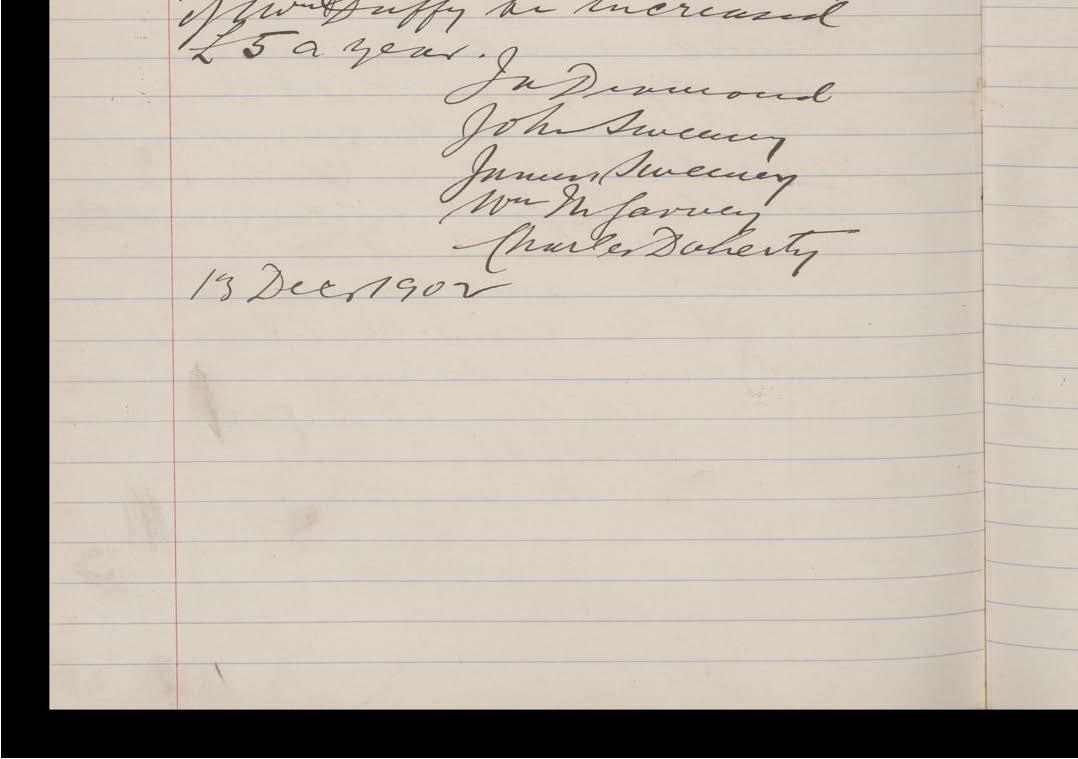 of Wm Duffy be increased
£5 a year.
Jn Diamond
John Sweeney
James Sweeney
Wm McGarvey
Charles Doherty
13 Decr 1902